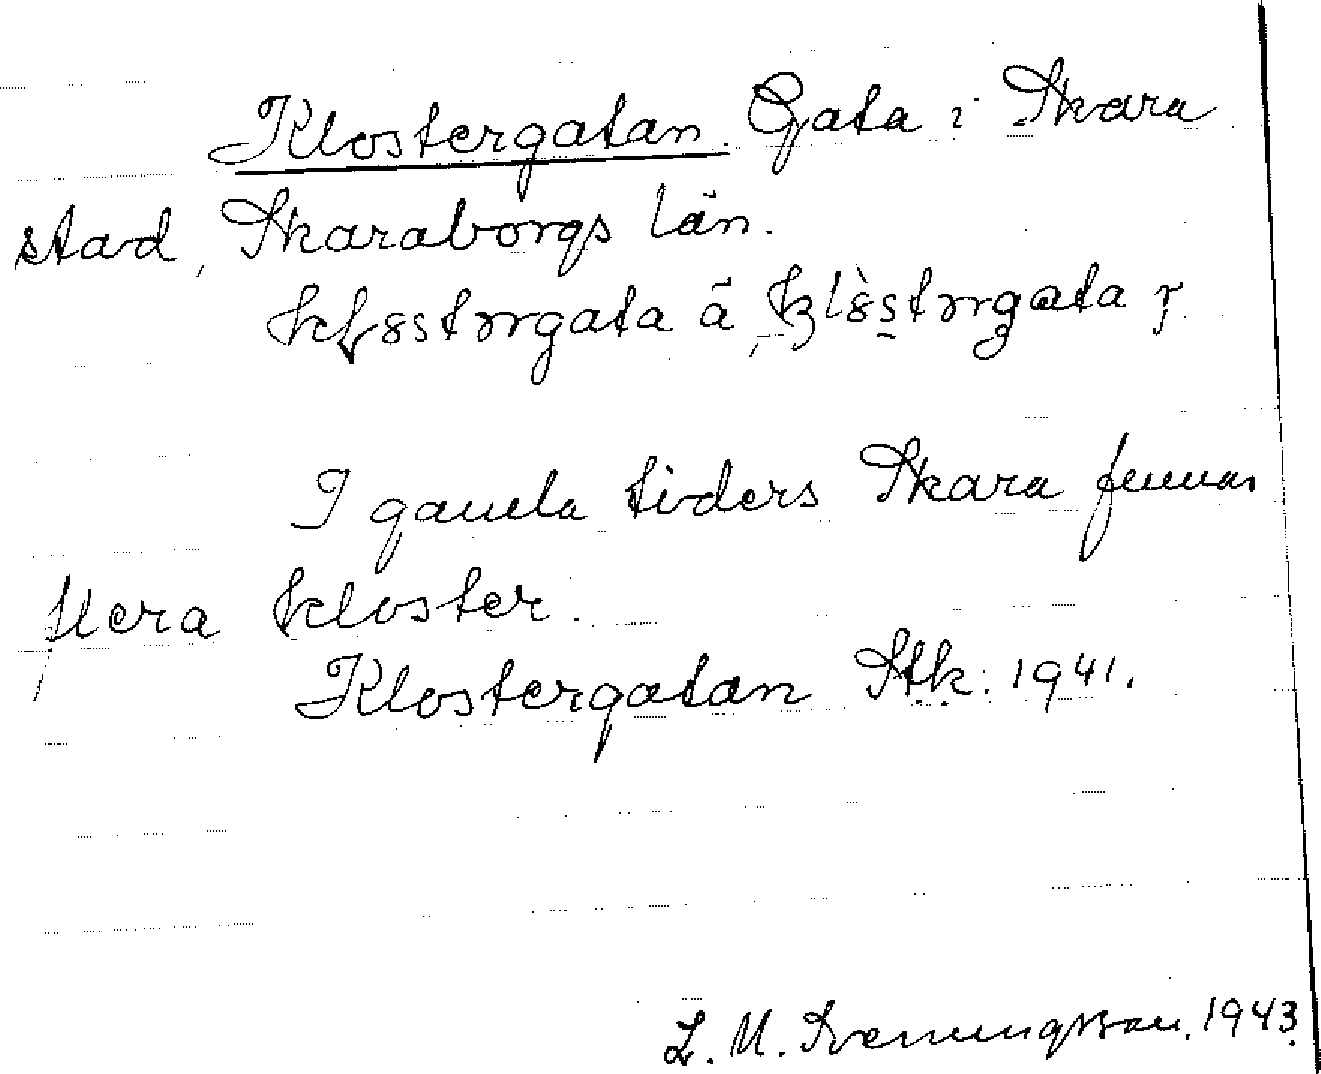 Klostergatan. Gata i Skara
stad, Skaraborgs län.
å
I gamla tiders Skara funnos
flera kloster.
Klostergatan Stk. 1941.
L. M. Svenungsson. 1943.